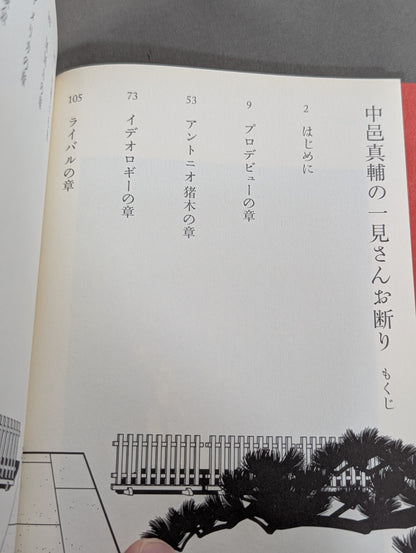 中邑真輔の一見さんお断り もくじ
2 はじめに
9 プロデビューの章
53 アントニオ猪木の章
73 イデオロギーの章
105 ライバルの章